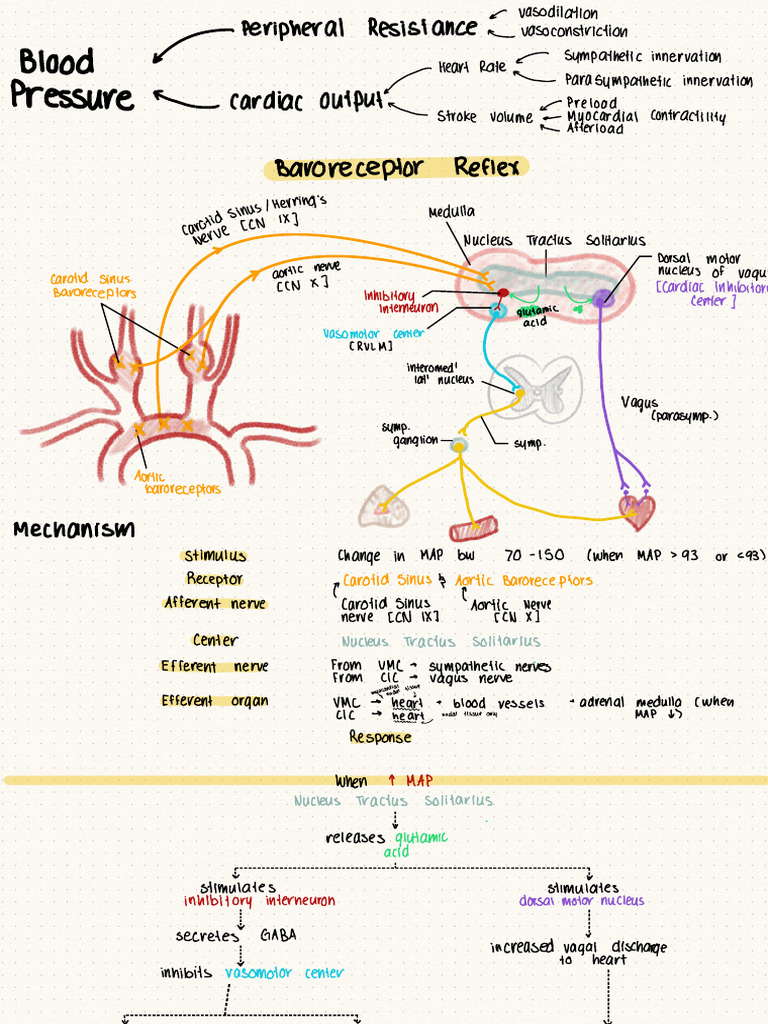 Peripheral Resistance
vasodilation
vasoconstriction
Blood
Pressure
Cardiac output
Heart Rate
Sympathetic innervation
Parasympathetic innervation
Stroke volume
Preload
Myocardial Contractility
Afterload
Baroreceptor Reflex
Carotid Sinus/Herring's
Nerve [CN IX]
aortic nerve
[CN X]
Carotid Sinus
Baroreceptors
Aortic
baroreceptors
Medulla
Nucleus Tractus Solitarius
Dorsal motor
nucleus of vagu
[Cardiac Inhibitory
Center]
Inhibitory
Interneuron
Vasomotor center
[RVLM]
glutamic
acid
interomed'
lat' nucleus
Vagus
(parasymp.)
symp.
ganglion
symp.
Mechanism
Stimulus
Change in MAP bw 70-150 (when MAP >93 or <93)
Receptor
Carotid Sinus & Aortic Baroreceptors
Afferent nerve
Carotid Sinus
nerve [CN IX]
Aortic Nerve
[CN X]
Center
Nucleus Tractus Solitarius
Efferent nerve
From VMC → sympathetic nerves
From CIC → vagus nerve
Efferent organ
VMC → heart → blood vessels → adrenal medulla (when
MAP ↓)
CIC → heart nodal tissue only
Response
When ↑ MAP
Nucleus Tractus Solitarius
releases glutamic
acid
stimulates
inhibitory interneuron
secretes GABA
inhibits vasomotor center
stimulates
dorsal motor nucleus
increased vagal discharge
to heart